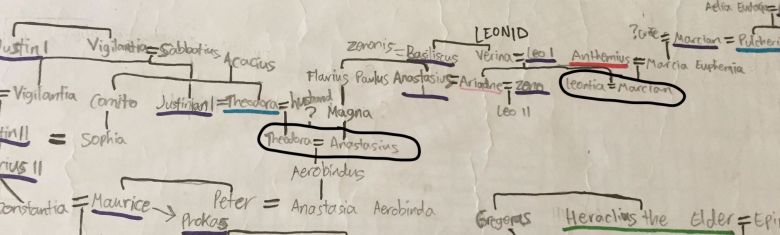 Aelia Eudoxia =
LEONID
? one = Marcian = Pulcheria
ustin I Vigilantia = Sabbatius zenonis = Basiliscus Verina = Leo I Anthemius
Acacius = Marcia Euphemia
Flavius Paulus Anastasius = Ariadne = Zeno Leontia = Marcian
= Vigilantia Comito Justinian I = Theodora = husband Leo II
? Magna
tin II = Sophia Theodora = Anastasius
rius II Aerobindus
onstantia = Maurice Peter = Anastasia Aerobinda Gregoras Heraclius the Elder = Epi
Phokas